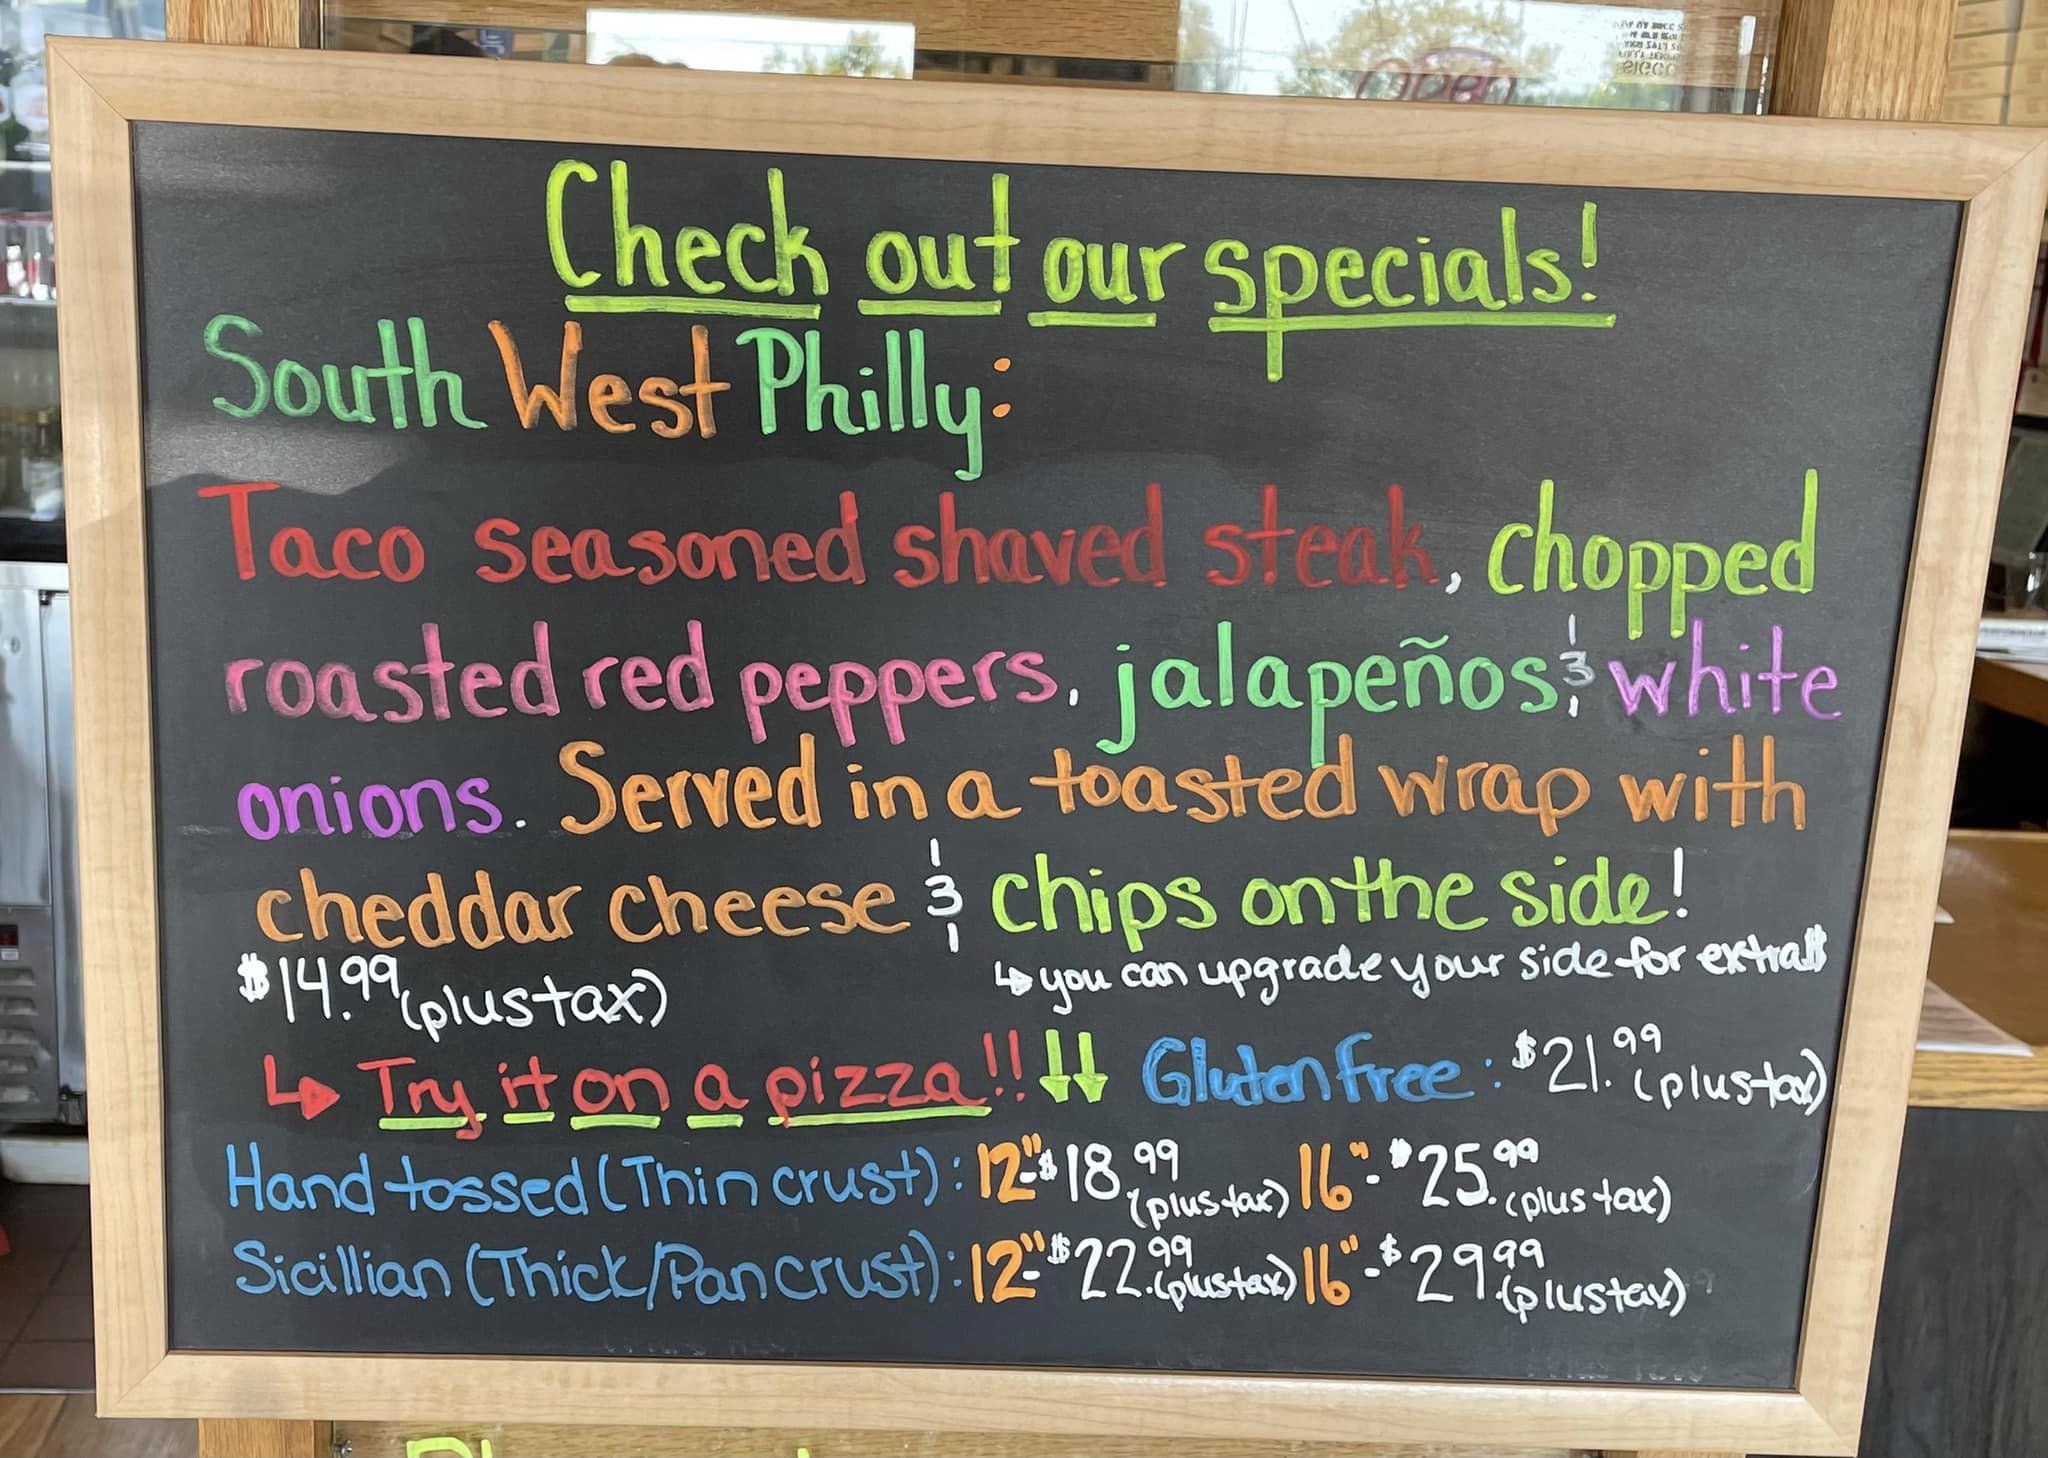 Open
Check out our specials!
South West Philly:
Taco seasoned shaved steak, chopped
roasted red peppers, jalapeños & white
onions. Served in a toasted wrap with
cheddar cheese & chips on the side!
$14.99 (plus tax)
↳ you can upgrade your side for extra $
↳ Try it on a pizza!! ↓↓
Gluten free: $21.99 (plus tax)
Hand tossed (Thin crust): 12"-$18.99 (plus tax) 16"-$25.99 (plus tax)
Sicillian (Thick/Pan crust): 12"-$22.99 (plus tax) 16"-$29.99 (plus tax)